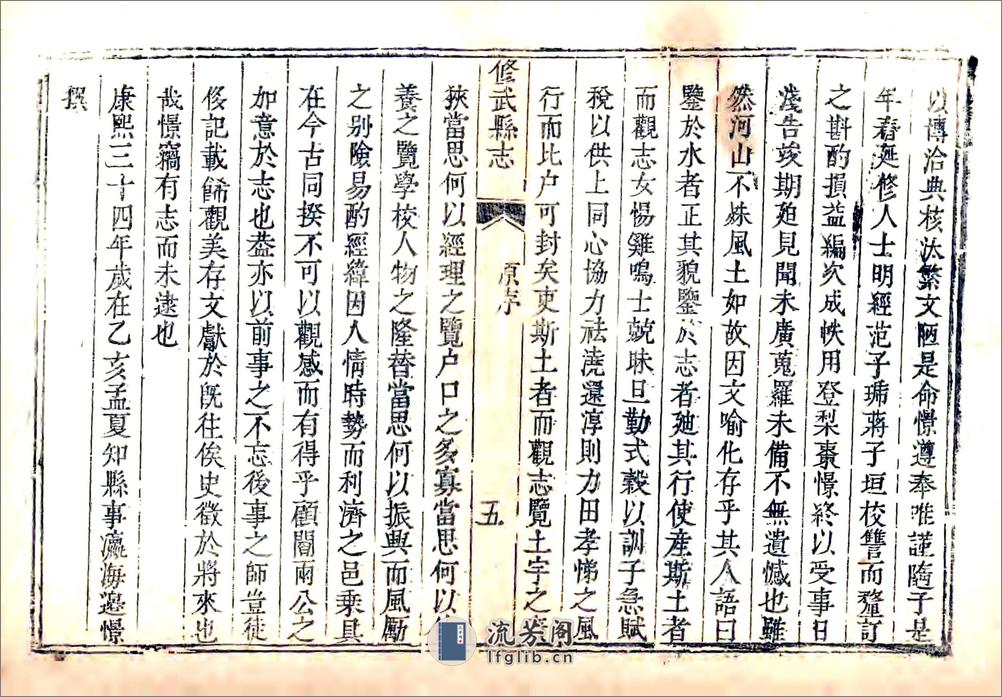 以博洽典核汰繁文陋是命憬遵奉唯謹隨于是
年春延修人士明經范子琋蔣子垣校讐而釐訂
之斟酌損益編次成帙用登梨棗憬終以受事日
淺告竣期廹見聞未廣蒐羅未備不無遺憾也雖
然河山不姝風土如故因文喻化存乎其人語曰
鑒於水者正其貌鑒於志者廸其行使産斯土者
而觀志女惕雞鳴士兢昧旦勤式穀以訓子急賦
稅以供上同心協力祛澆還淳則力田孝悌之風
行而比户可封矣吏斯土者而觀志覽土宇之
修武縣志
原序
五
狹當思何以經理之覽户口之多寡當思何以
養之覽學校人物之隆替當思何以振興而風勵
之别險易酌經緯因人情時勢而利濟之邑乘具
在今古同揆不可以觀感而有得乎顧閻兩公之
如意於志也葢亦以前事之不忘後事之師豈徒
侈記載餙觀美存文獻於旣往俟史徵於將來也
哉憬竊有志而未逮也
康熙三十四年歲在乙亥孟夏知縣事瀛海邉憬
撰
流芳阁
lfglib.cn